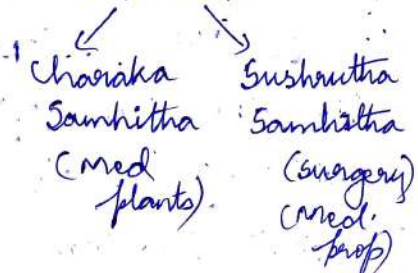 Charaka
Samhitha
(Med
plants).
Sushrutha
Samhitha
(surgery)
(Med.
prop)